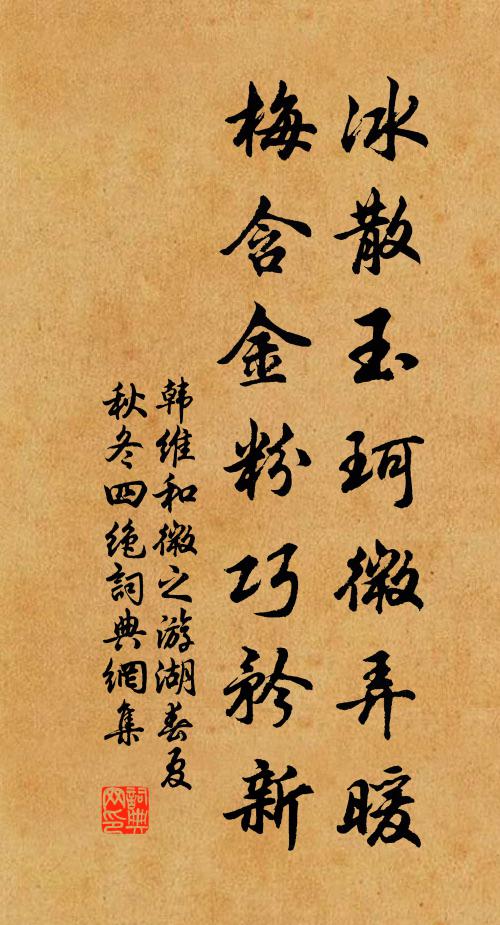 冰散玉珂微弄暖
梅含金粉巧矜新
韩维和微之游湖春夏
秋冬四绝詞典網集
詞典
网印